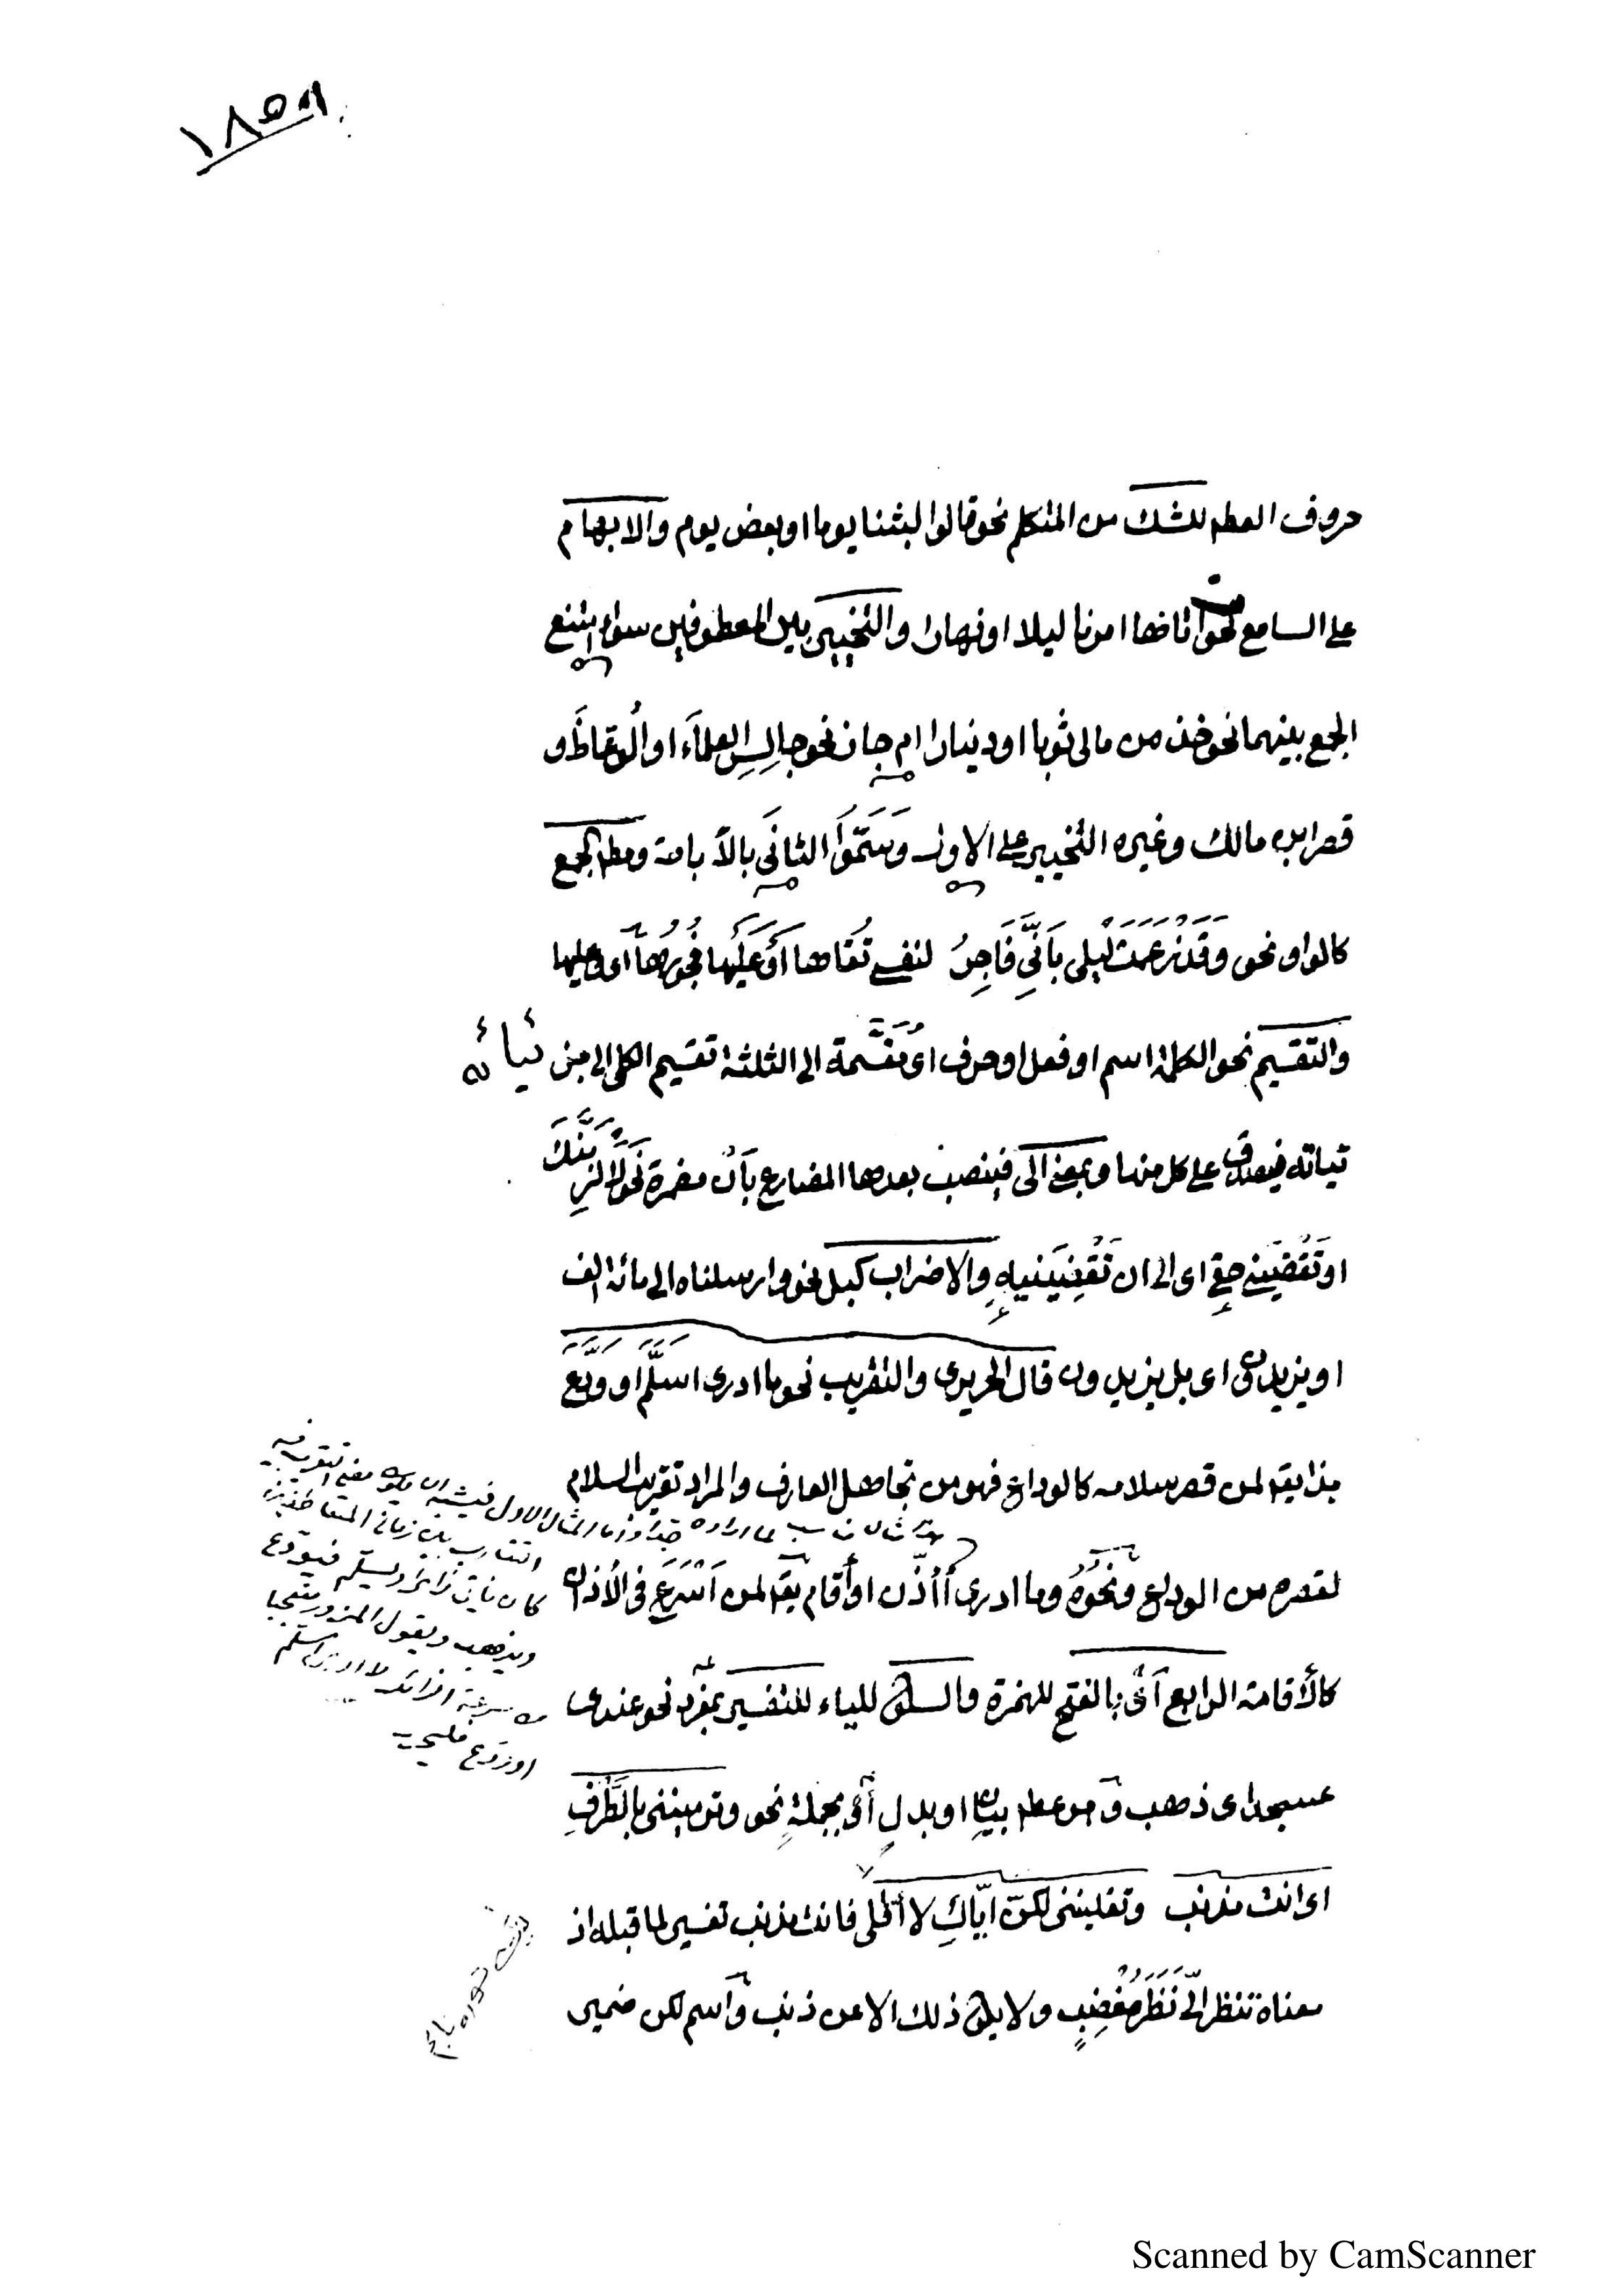 ١٨٥٩
حروف العطف للشك من المتكلم نحو قالوا لبثنا يوما او بعض يوم والابهام
على السامع نحو اتاها امرنا ليلا او نهارا والتخيير بين المعطوفين سواء امتنع
الجمع بينهما نحو خذ من مالى ثوبا او دينارا ام جاز نحو جالِسِ العلمآء او الوعّاظَ و
قصر ابن مالك وغيره التخيير على الاول وَسَمَّوا الثانَى بالاباحة ومطلق الجمع
كالواو نحو وَقَدْ زَعَمَتْ لَيْلى بَأنِّى فَاجِرُ لنفسى تُقَاها أَوْ عَلَيْها فُجُورُها اى وعليها
والتقسيم نحو الكلمة اسم او فعل او حرف اى مُقَسَّمة الى الثلثة تقسيم الكلى الى جزئياته
تياته فيصدق على كل منها وبمعنى الى فينصب بعدها المضارع بَأنْ مضمرة نَحْوُ لَأَلْزَمَنَّكَ
او تَقْضَيَنِى حقى اى الى ان تَقْضِيَنِيهِ والاضراب كبل نحو وارسلناه الى مائة الف
او يزيدون اى بل يزيدون قال الحريرى والتقريب نحو ما ادرى اسَلَّمَ او وَدَّعَ
هذا يقال لمن قصر سلامه كالوداع فهو من تجاهل العارف والمراد تقريب السلام
لقصره من الوداع ونَحْوُهُ وما ادرى أأذّن او أقام يقال لمن اَسْرَعَ فى الأذان
كالأقامة الرابع أى بالفتح للهمزة والسكون للياء للتفسير بمفرد نحو عندى
عسجد اى ذهب وهو عطف بيان او بدل أو بجملةٍ نحو وترميننى بالطَّرْفِ
اى انت مذنب وتقليننى لكنّ ايّاكِ لا أقلى فانت مذنب تفسير لما قبله اذ
معناه تنظر الىّ نَظَرَ مُغْضِبٍ ولا يكون ذلك الا عن ذنب واسم لكن ضمير
المثال الاول فيشبه ان يكون معنى التقريب فيه
التقارب بين زمانى المتعاطفين
كان ياتى زائر ويسلم فيودع
ويذهب ويقول المزور متعجبا
من سرعة الزائر لا ادرى اسلم
او ودع